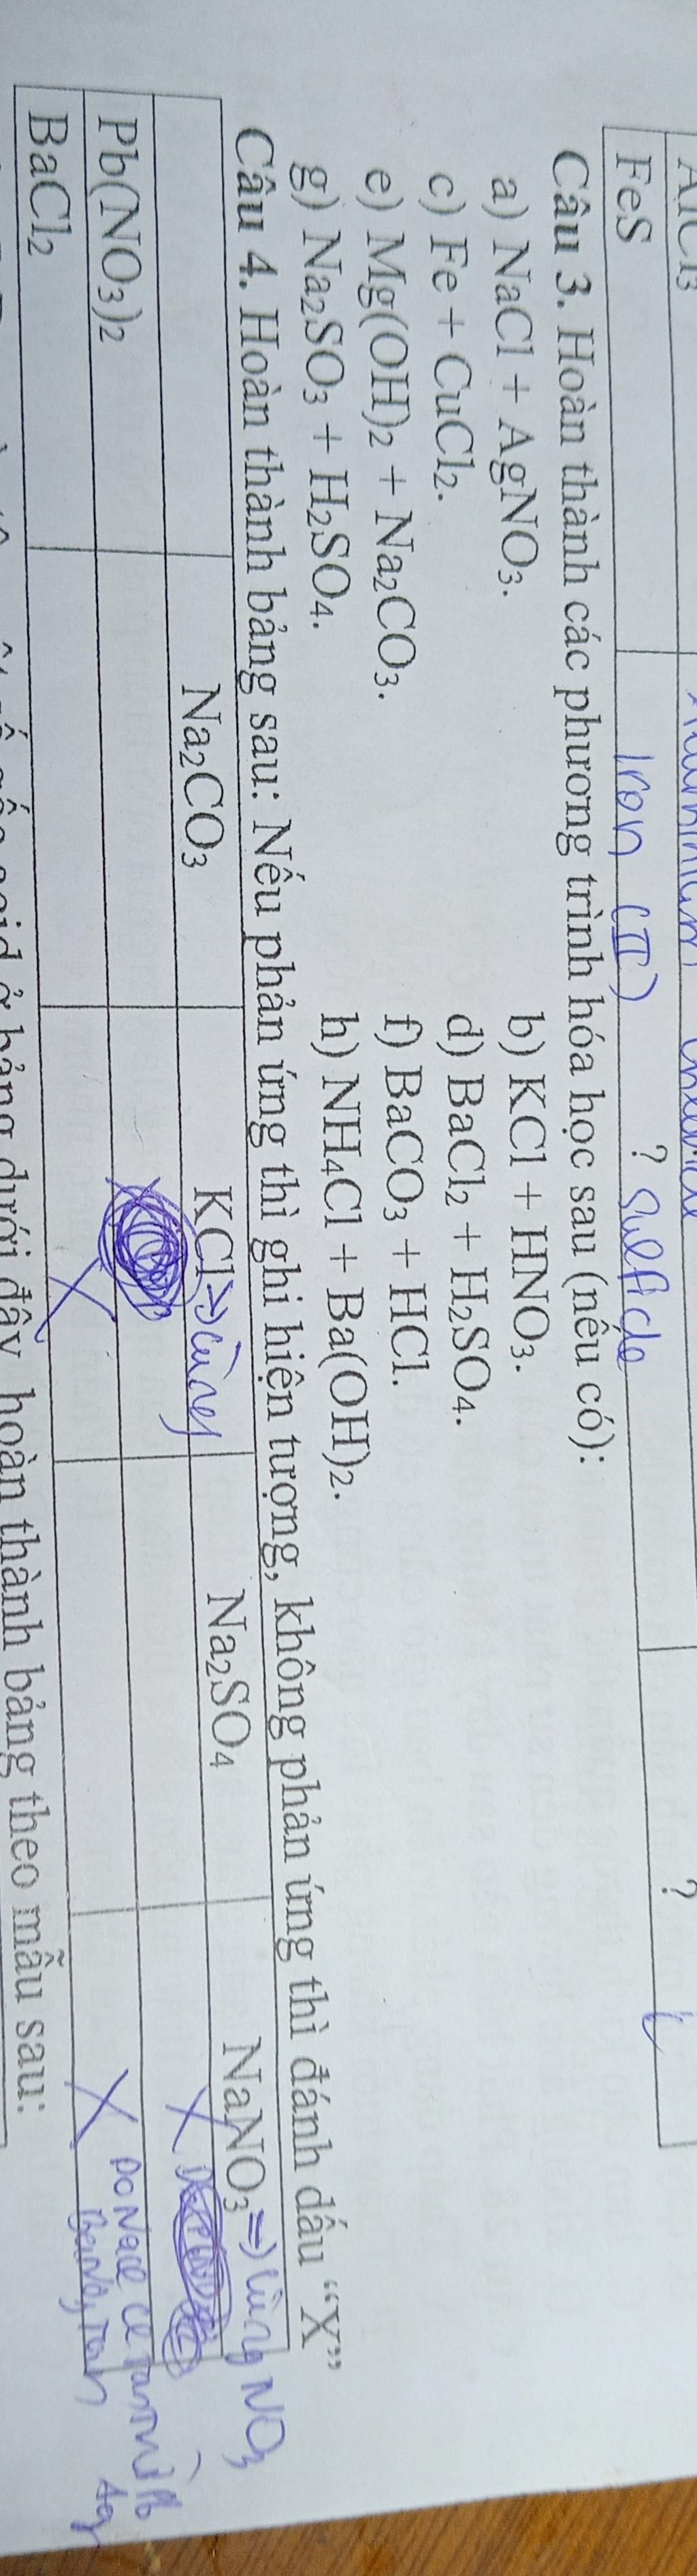 AlCl3
FeS Iron (II) ? sulfide ?
Câu 3. Hoàn thành các phương trình hóa học sau (nếu có):
a) NaCl + AgNO3. b) KCl + HNO3.
c) Fe + CuCl2. d) BaCl2 + H2SO4.
e) Mg(OH)2 + Na2CO3. f) BaCO3 + HCl.
g) Na2SO3 + H2SO4. h) NH4Cl + Ba(OH)2.
Câu 4. Hoàn thành bảng sau: Nếu phản ứng thì ghi hiện tượng, không phản ứng thì đánh dấu “X”
Na2CO3 KCl => cùng Na2SO4 NaNO3 => cùng NO3
Pb(NO3)2 X
BaCl2 X X Do NaCl
tan
ở bảng dưới đây hoàn thành bảng theo mẫu sau: